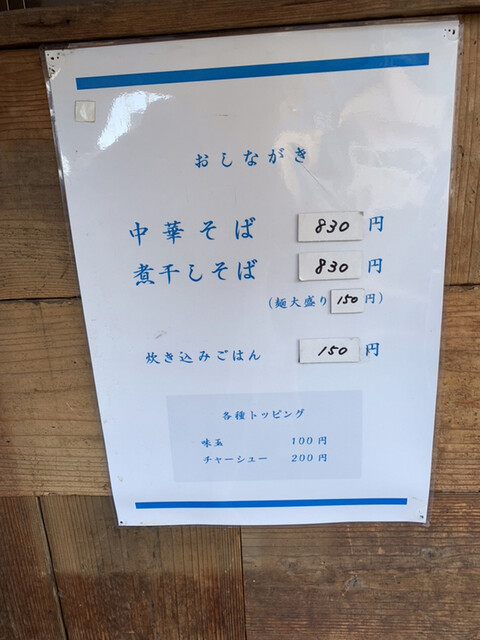 おしながき
中華そば 830円
煮干しそば 830円
(麺大盛り 150円)
炊き込みごはん 150円
各種トッピング
味玉 100円
チャーシュー 200円